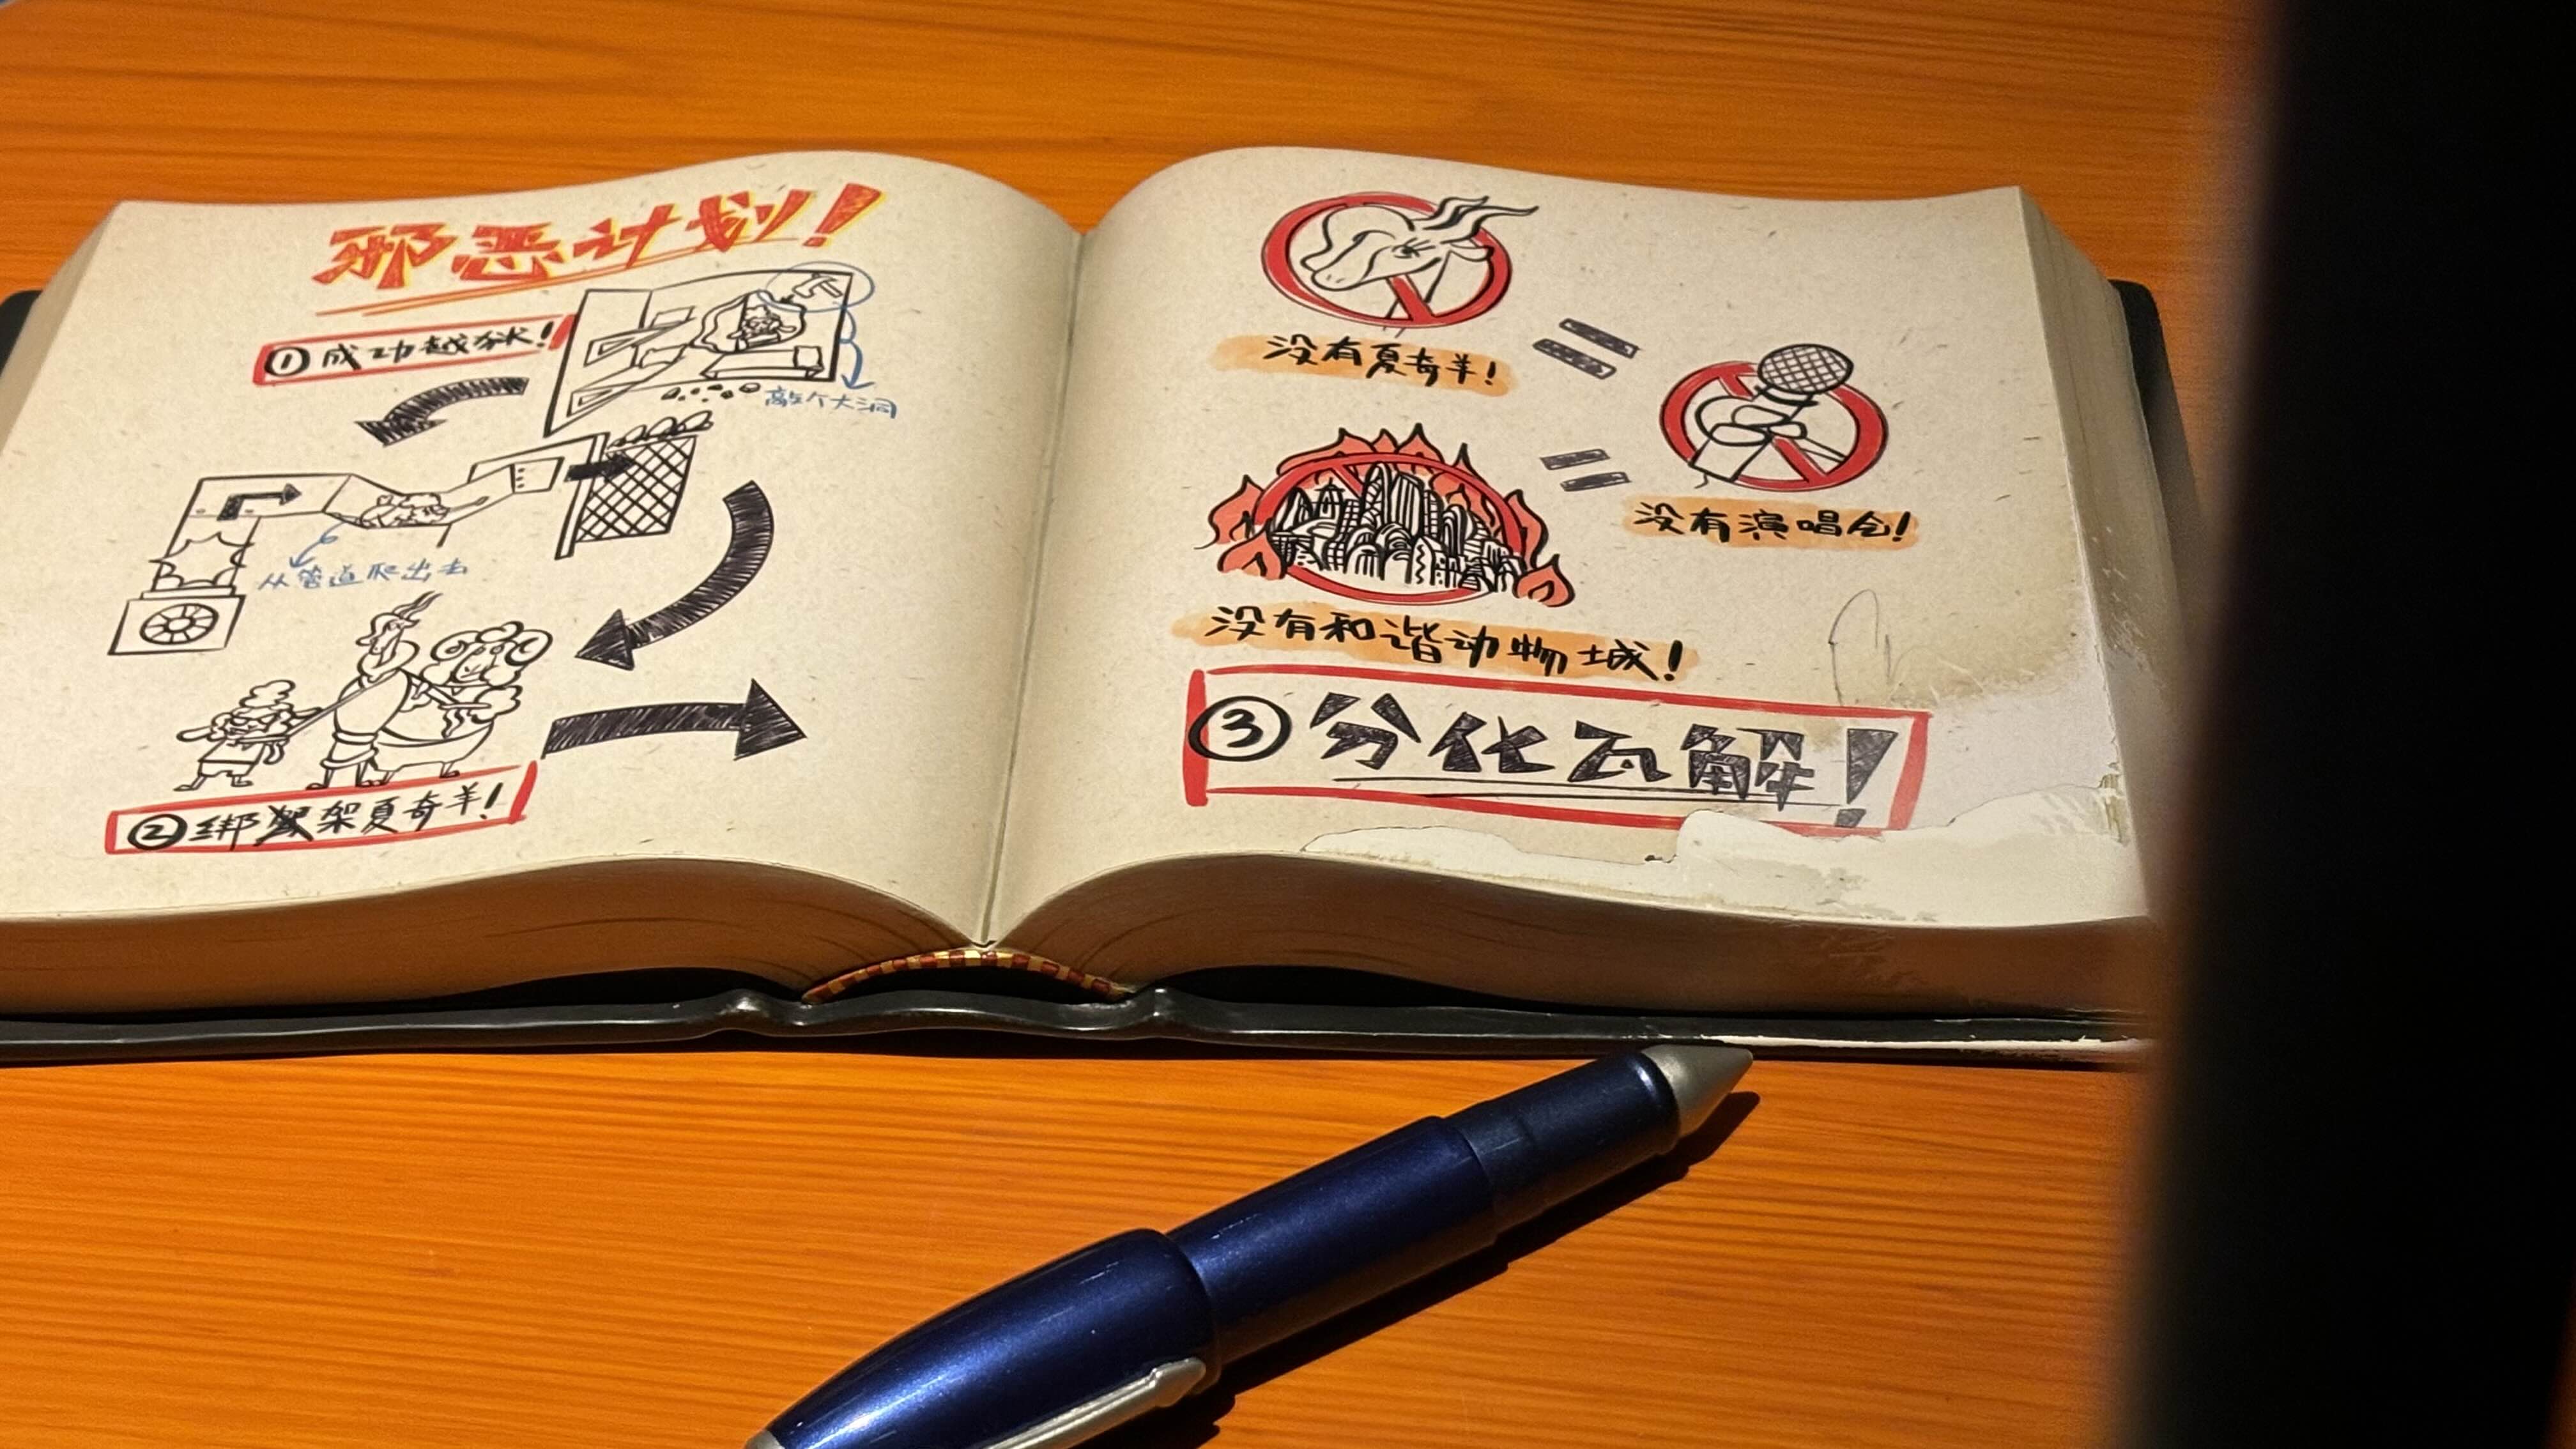 邪恶计划!
①成功越狱!
敲个大洞
从管道爬出去
②绑架夏奇羊!
没有夏奇羊!
没有演唱会!
没有和谐动物城!
③分化瓦解!